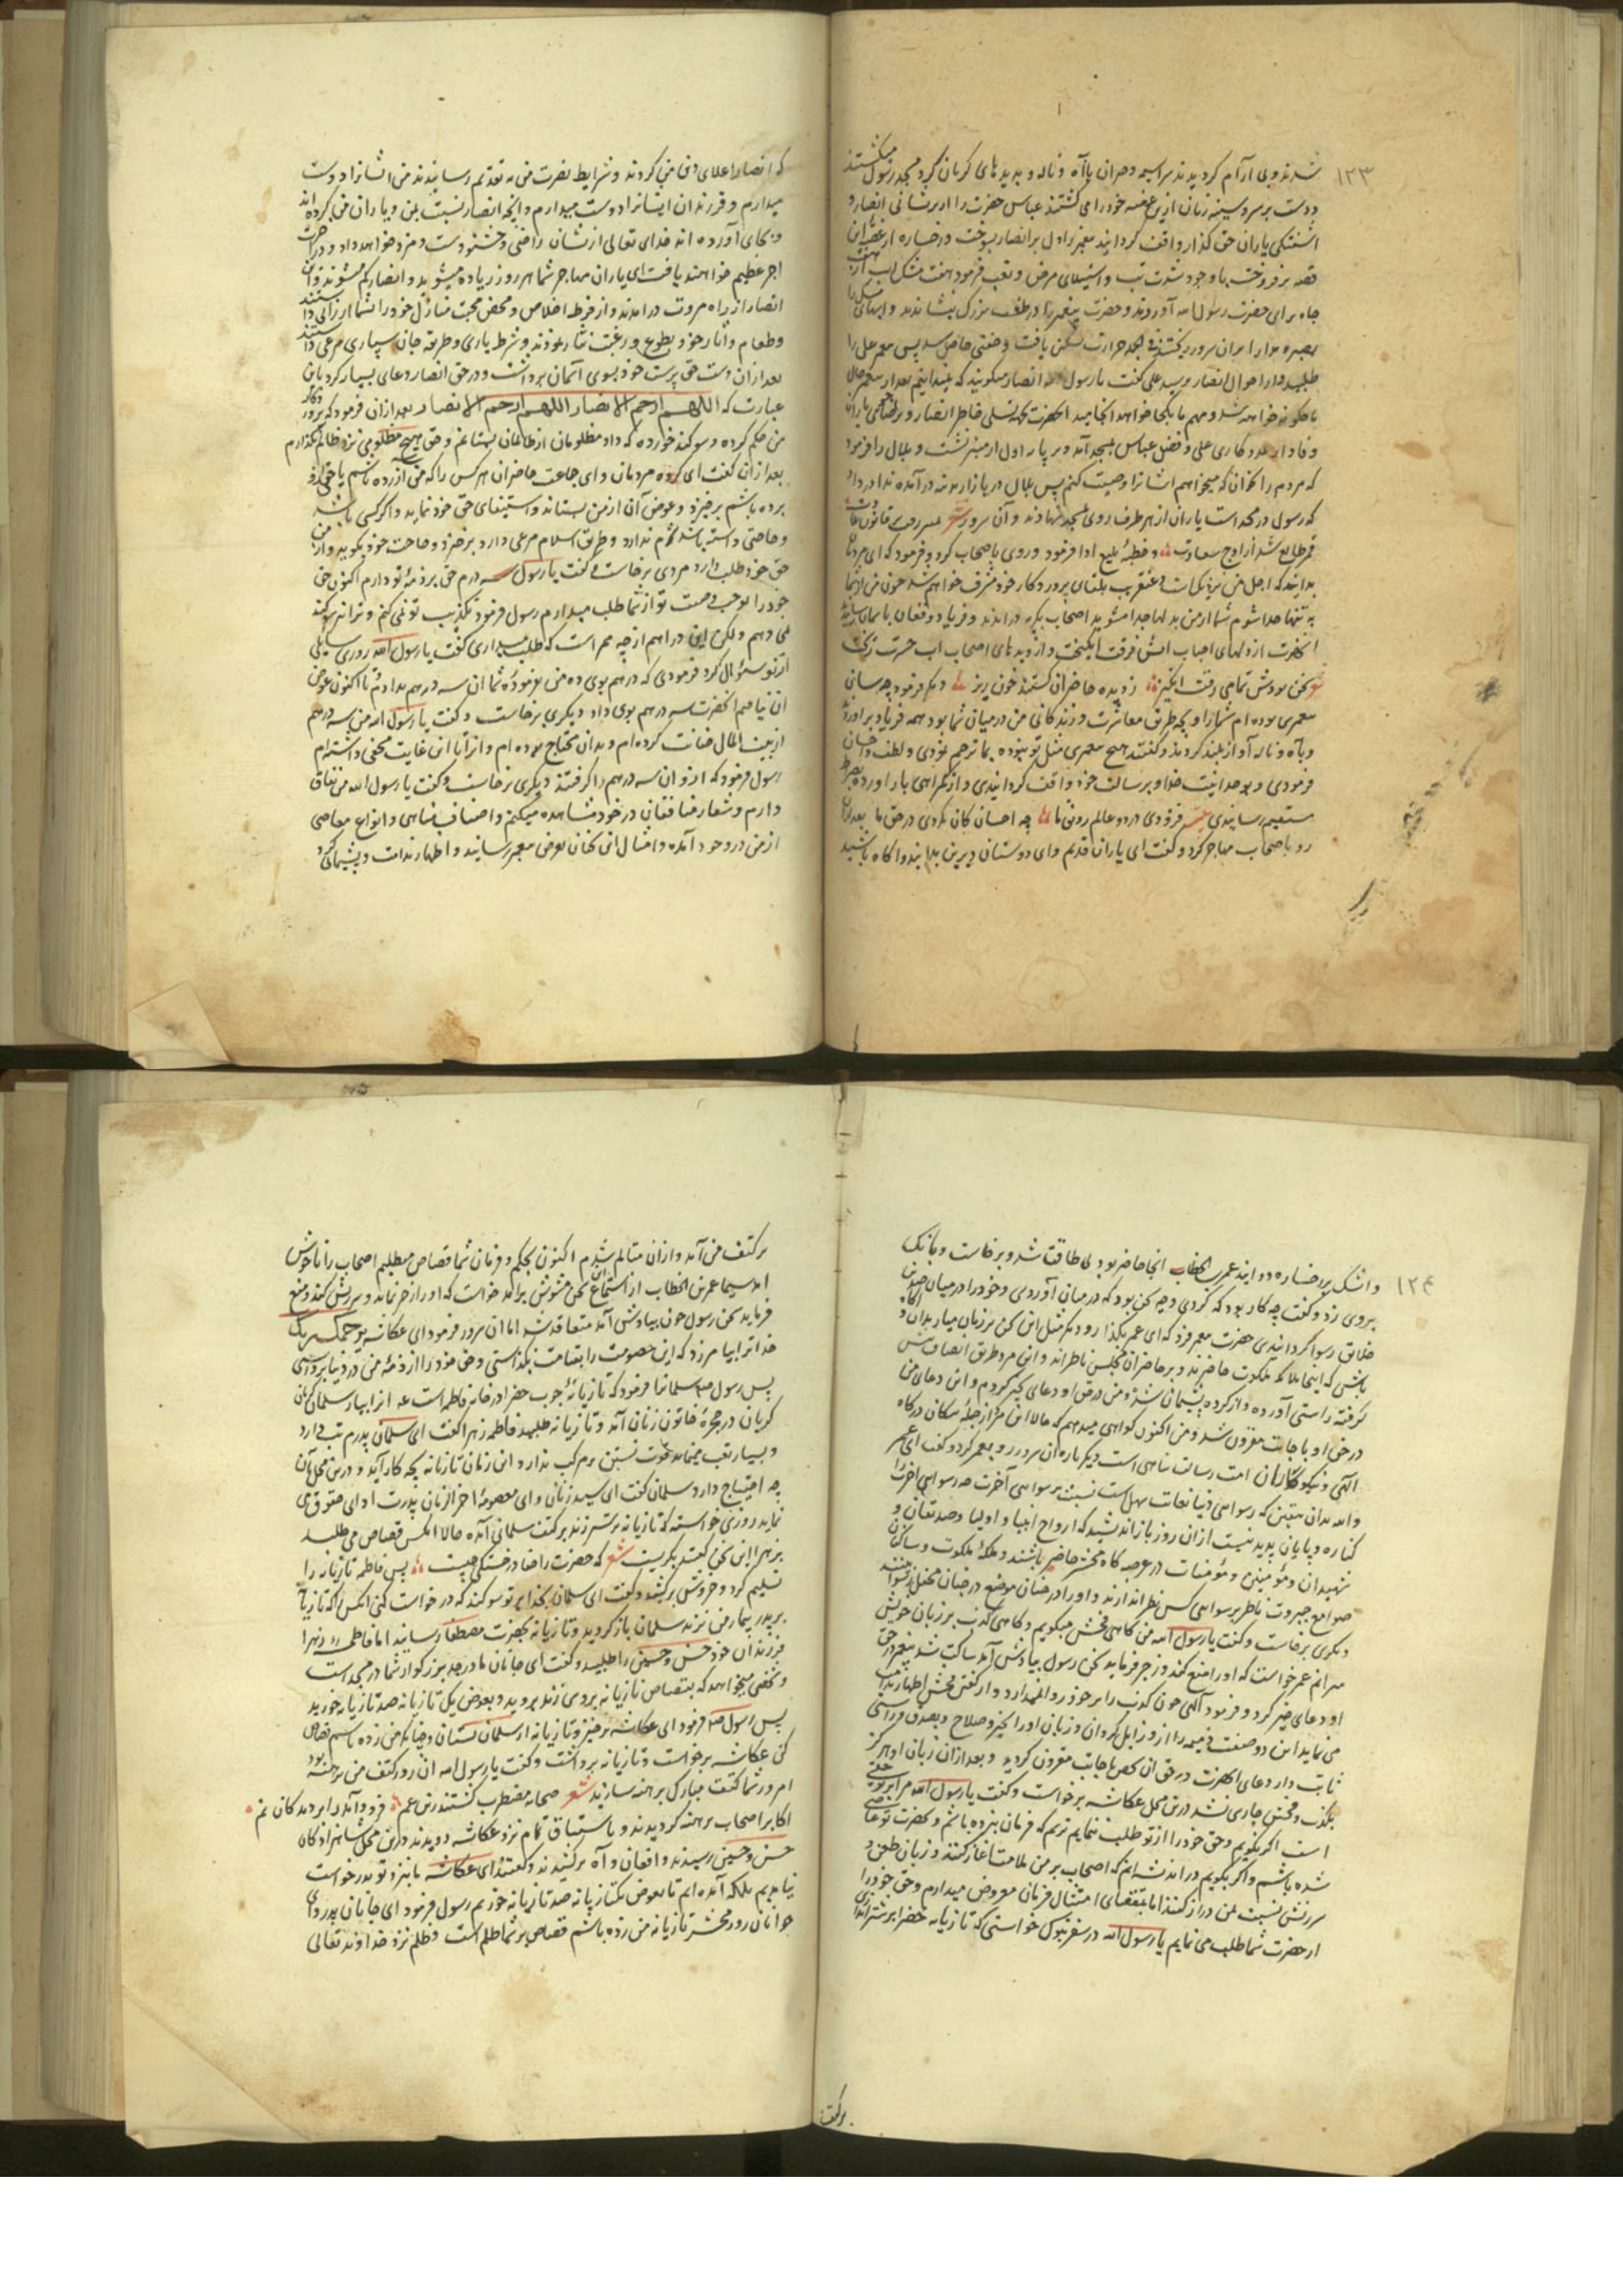 ۱۲۳
شدند و بی آرام گردیدند سراسیمه و حیران با آه و ناله و بدیدهای گریان گرد مسجد رسول میگشتند
دست بر سر و سینه زنان ازین غصه خود را می کشتند عباس حضرت را از پریشانی انصار و
آشفتگی یاران حق گذار واقف گردانید پیغمبر را دل بر انصار بسوخت و رخساره از غصه این
قصه برفروخت با وجود شدت تب و استیلای مرض و تعب فرمود هفت مشک آب از هفت
چاه برای حضرت رسول الله آوردند و حضرت پیغمبر را در طشت بزرگ بنشاندند و آبهای مشک را
بر آن سرور ریختند فی الجمله حرارت تسکین یافت و خفتی حاصل شد پس پیغمبر علی را
طلبید و از احوال انصار پرسید علی گفت یا رسول الله انصار میگویند که نمیدانیم بعد از پیغمبر حال
ما چگونه خواهد شد و مهم ما بکجا خواهد انجامید آنحضرت بجهة تسلی خاطر انصار و یاران
وفادار بمددکاری علی و فضل عباس بمسجد آمد و بر پایه اول از منبر نشست و بلال را فرمود
که مردم را بخوان که میخواهم ایشانرا وصیت کنم پس بلال در بازار مدینه درآمده ندا در داد
که رسول در مسجد است یاران از هر طرف روی بمسجد نهادند و آن سرور شعر
قمر طالع شد از اوج سعادت و خطبهٔ بلیغ ادا فرمود و روی باصحاب کرد و فرمود که ای مردمان
بدانید که اجل من نزدیک است و عنقریب بلقای پروردگار خود مشرف خواهم شد چون من از شما
به تنها جدا شوم شما از من بدلها جدا مشوید اصحاب بگریه درآمدند و فریاد و فغان بآسمان رسانیدند
آنحضرت از دلهای احباب آتش فرقت انگیخت و از دیدهای اصحاب آب حسرت ریخت
شعر سخن بودش تمامی رقت انگیز ز دیده حاضران گشتند خون ریز دیگر فرمود چه سان
پیغمبری بوده‌ام شما را و بچه طریق معاشرت و زندگانی من در میان شما بود همه فریاد برآوردند
و بآه و ناله آواز بلند کردند و گفتند هیچ پیغمبری مثل تو نبوده بما ترحم نمودی و لطف و احسان
فرمودی و بوحدانیت خدا و برسالت خود واقف گردانیدی و از گمراهی باز آورده بصراط
مستقیم رسانیدی فزودی در دو عالم رونق ما چه احسان کان نکردی در حق ما بعد ازان
رو باصحاب مهاجر کرد و گفت ای یاران قدیم و ای دوستان دیرین بدانید و آگاه باشید
که انصار اعلای دین من کردند و شرایط نصرت من به تقدیم رسانیدند من ایشانرا دوست
میدارم و فرزندان ایشانرا دوست میدارم و آنچه انصار نسبت بمن و یاران من کرده‌اند
و بجای آورده اند خدای تعالی ازیشان راضی و خشنودست و مزد خواهد داد و در آخرت
اجر عظیم خواهند یافت ای یاران مهاجر شما هر روز زیاده میشوید و انصار کم میشوند و این
انصار از راه مروت درآمدند و از فرط اخلاص و محض محبت منازل خود را بشما ارزانی داشتند
و طعام و اثار خود بطوع و رغبت نثار نمودند و شرط یاری و طریقه جان سپاری مرعی داشتند
بعد ازان دست حق پرست خود بسوی آسمان برداشت و در حق انصار دعای بسیار کرد باین
عبارت که اللهم ارحم الانصار اللهم ارحم الانصار بعد ازان فرمود که پروردگار
من حکم کرده و سوگند خورده که داد مظلومان از ظالمان بستانم و حق هیچ مظلومی نزد ظالم نگذارم
بعد ازان گفت ای گروه مردمان و ای جماعت حاضران هر کس را که من آزرده باشم یا حق او
برده باشم برخیزد و عوض آن از من بستاند و استیفای حق خود نماید و اگر کسی باشد
و حاجتی داشته باشد شرم ندارد و طریق اسلام مرعی دارد برخیزد و حاجت خود بگوید و از من
حق خود طلب دارد مردی برخاست و گفت یا رسول سه درم حق بر ذمهٔ تو دارم اکنون حق
خود را بموجب وصیت تو از شما طلب میدارم رسول فرمود تکذیب تو نمی کنم و ترا سوگند
نمی دهم ولکن این دراهم از چه ممر است که طلب میداری گفت یا رسول الله روزی سایلی
از تو سؤال کرد فرمودی که درهم بوی ده من بفرمودهٔ شما آن سه درهم بدادم تا اکنون عوض
آن نیافتم آنحضرت سه درهم بوی داد دیگری برخاست و گفت یا رسول الله من سه درهم
از بیت المال خیانت کرده‌ام و بدان محتاج بوده ام و از آنرا این غایت مخفی داشته‌ام
رسول فرمود که از وی آن سه درهم را گرفتند دیگری برخاست و گفت یا رسول الله من نفاق
دارم و شعار منافقان در خود مشاهده میکنم و اصناف مناهی و انواع معاصی
از من در وجود آمده و امثال این سخنان بعرض پیغمبر رسانید و اظهار ندامت و پشیمانی کرد
۱۲۴
و اشک بر رخساره دوانید عمر بن الخطاب آنجا حاضر بود بی طاقت شد و برخاست و بانگ
بروی زد و گفت چه کار بود که کردی و چه سخن بود که در میان آوردی و خود را در میان چندین
خلایق رسوا گردانیدی حضرت پیغمبر فرمود که ای عمر بگذار و دیگر مثل این سخن بر زبان میار بدان و آگاه
باش که اینجا ملائکه ملکوت حاضرند و بر حاضران مجلس ناظراند و این مرد طریق انصاف پیش
گرفته راستی آورده و از کرده پشیمان شد و من در حق او دعای خیر کردم و این دعای من
در حق او باجابت مقرون شد و من اکنون گواهی میدهم که حالا این مرد از جمله نیکان درگاه
الهی و نیکوکاران امت رسالت پناهی است دیگر باره آن سرور رو بعمر کرد و گفت ای عمر
والله بدان بیقین که رسوایی دنیا بغایت سهل است نسبت برسوایی آخرت چه رسوایی آخرت را
کناره و پایان پدید نیست ازان روز باز اندیشید که ارواح انبیا و اولیا و صدیقان و
شهیدان و مؤمنین و مؤمنات در عرصه گاه محشر حاضر باشند و ملائکهٔ ملکوت و ساکنان
صوامع جبروت ناظر برسوایی کس نظر اندازند و او را در چنان موضع در چنان محفل رسوا بینند
دیگری برخاست و گفت یا رسول الله من گاهی فحش میگویم و گاهی کذب بر زبان خویش
میرانم عمر خواست که او را منع کند و زجر فرماید سخن رسول بیادش آمد ساکت شد پیغمبر در حق
او دعای خیر کرد و فرمود الهی چون کذب را بر خود روا نمیدارد و از گفتن فحش اظهار ندامت
می نماید این دو صفت ذمیمه را از و زایل گردان و زبان او را بخیر و صلاح و بصدق و راستی
ثابت دار دعای آنحضرت در حق آن شخص باجابت مقرون گردید و بعد ازان زبان او هرگز
بکذب و فحش جاری نشد درین محل عکاشه برخواست و گفت یا رسول الله مرا بر تو حقی
است اگر نگویم و حق خود را از تو طلب ننمایم ترسم که فرمان نبرده باشم و بحضرت تو عاصی
شده باشم و اگر بگویم در اندیشه‌ام که اصحاب بر من ملامت آغاز کنند و زبان طعن و
سرزنش نسبت بمن دراز کنند اما بمقتضای امتثال فرمان معروض میدارم و حق خود را
از حضرت شما طلب می نمایم یا رسول الله در سفر تبوک خواستی که تازیانه خضرا بر شتر اندازی
برکتف
بر کتف من آمد و ازان متالم شدم اکنون بحکم و فرمان شما قصاص میطلبم اصحاب را ناخوش
آمد سیما عمر بن الخطاب از استماع این سخن مشوش برآمد خواست که او را ازخر نماند و سرزنش کند و منع
فرماید سخن رسول چون بیادش آمد متقاعد شد اما آن سرور فرمود ای عکاشه یرحمک ربک
خدا ترا بیامرزد که این خصومت را بقیامت نگذاشتی و حق خود را از ذمهٔ من در دنیا برداشتی
پس رسول الله سلمانرا فرمود که تازیانهٔ چوب خضرا در خانه فاطمه است آنرا بیار سلمان گریان
گریان در حجرهٔ خاتون زنان آمد و تازیانه طلبید فاطمه زهرا گفت ای سلمان پدرم تب دارد
و بسیار تعب میکشد قوت نشستن بر مرکب ندارد این زمان تازیانه بچه کار آید و درین محل بآن
چه احتیاج دارد سلمان گفت ای سیده زنان و ای معصومهٔ آخر الزمان پدرت ادای حقوق می
نماید روزی خواسته که تازیانه بر شتر زند بر کتف مسلمانی آمده حالا آنکس قصاص می طلبد
زهرا این سخن شنید بگریست شعر که حضرت را قضا در خستگی چیست پس فاطمه تازیانه را
تسلیم کرد و خروش برکشید و گفت ای سلمان بخدا بر تو سوگند که درخواست کنی آنکس را که تازیانه
بر پدر بیمار من نزند سلمان باز گردید و تازیانه بحضرت مصطفی رسانید اما فاطمه زهرا
فرزندان خود حسن و حسین را طلبید و گفت ای جانان مادر جد بزرگوار شما در مسجد است
و شخصی میخواهد که بقصاص تازیانه بروی زند بروید و بعوض یک تازیانه صد تازیانه خورید
پس رسول الله فرمود ای عکاشه برخیز و تازیانه از سلمان بستان و چنانکه من زده باشم قصاص
کن عکاشه برخواست و تازیانه برداشت و گفت یا رسول الله آن روز کتف من برهنه بود
امروز شما کتف مبارک برهنه سازید شعر صحابه مضطرب گشتند زین غم فرود آمد ز ابر دیدگان نم
اکابر اصحاب برهنه گردیدند و باستباق تمام نزد عکاشه دویدند درین محل شاهزادگان
حسن و حسین رسیدند و افغان و آه برکشیدند و گفتند ای عکاشه ما بنزد تو بدرخواست
نیامدیم بلکه آمده ایم تا بعوض یک تازیانه صد تازیانه خوریم رسول فرمود ای جانان پدر و ای
جوانان روز محشر تازیانه من زده باشم قصاص بر شما ظلم است و ظلم نزد خداوند تعالی